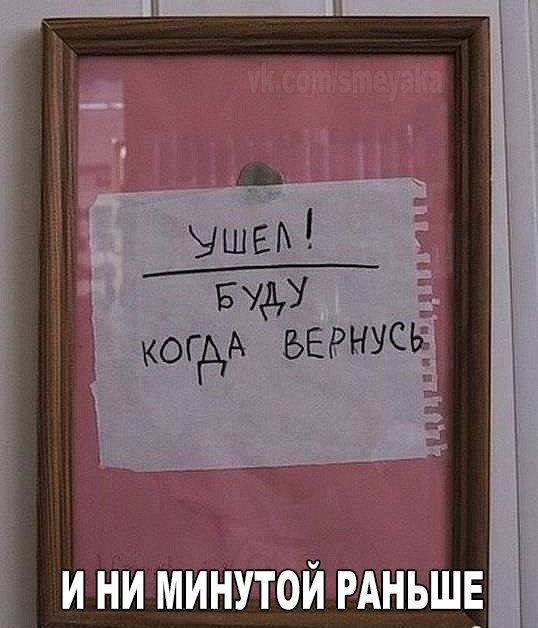 vk.com/smeyaka
УШЕЛ!
БУДУ
КОГДА ВЕРНУСЬ
И НИ МИНУТОЙ РАНЬШЕ